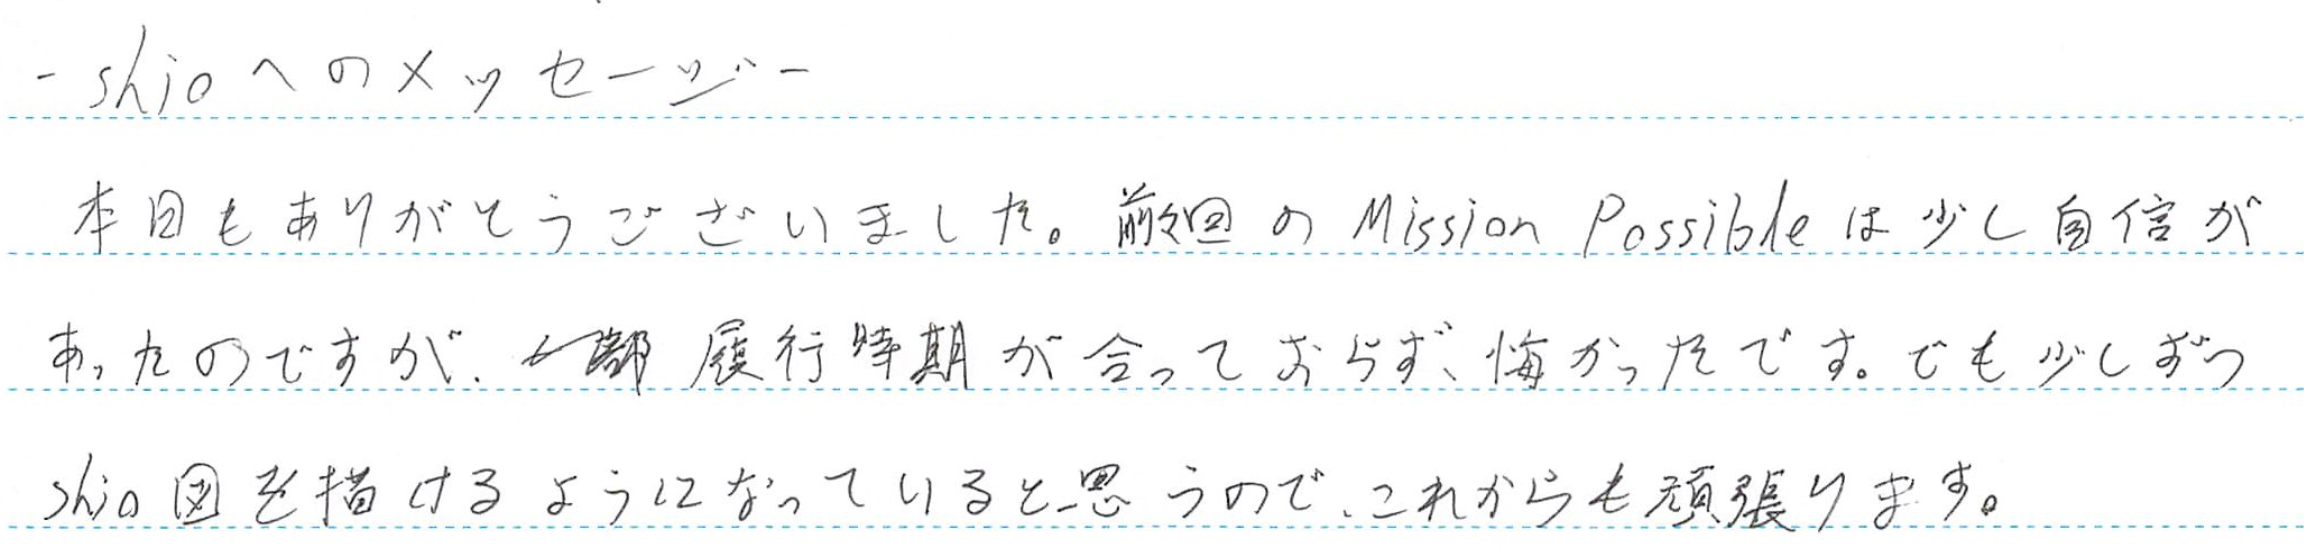 - shioへのメッセージ -
本日もありがとうございました。前回のMission Possibleは少し自信が
あったのですが、一部履行時期が合っておらず、悔かったです。でも少しずつ
shio図を描けるようになっていると思うので、これからも頑張ります。